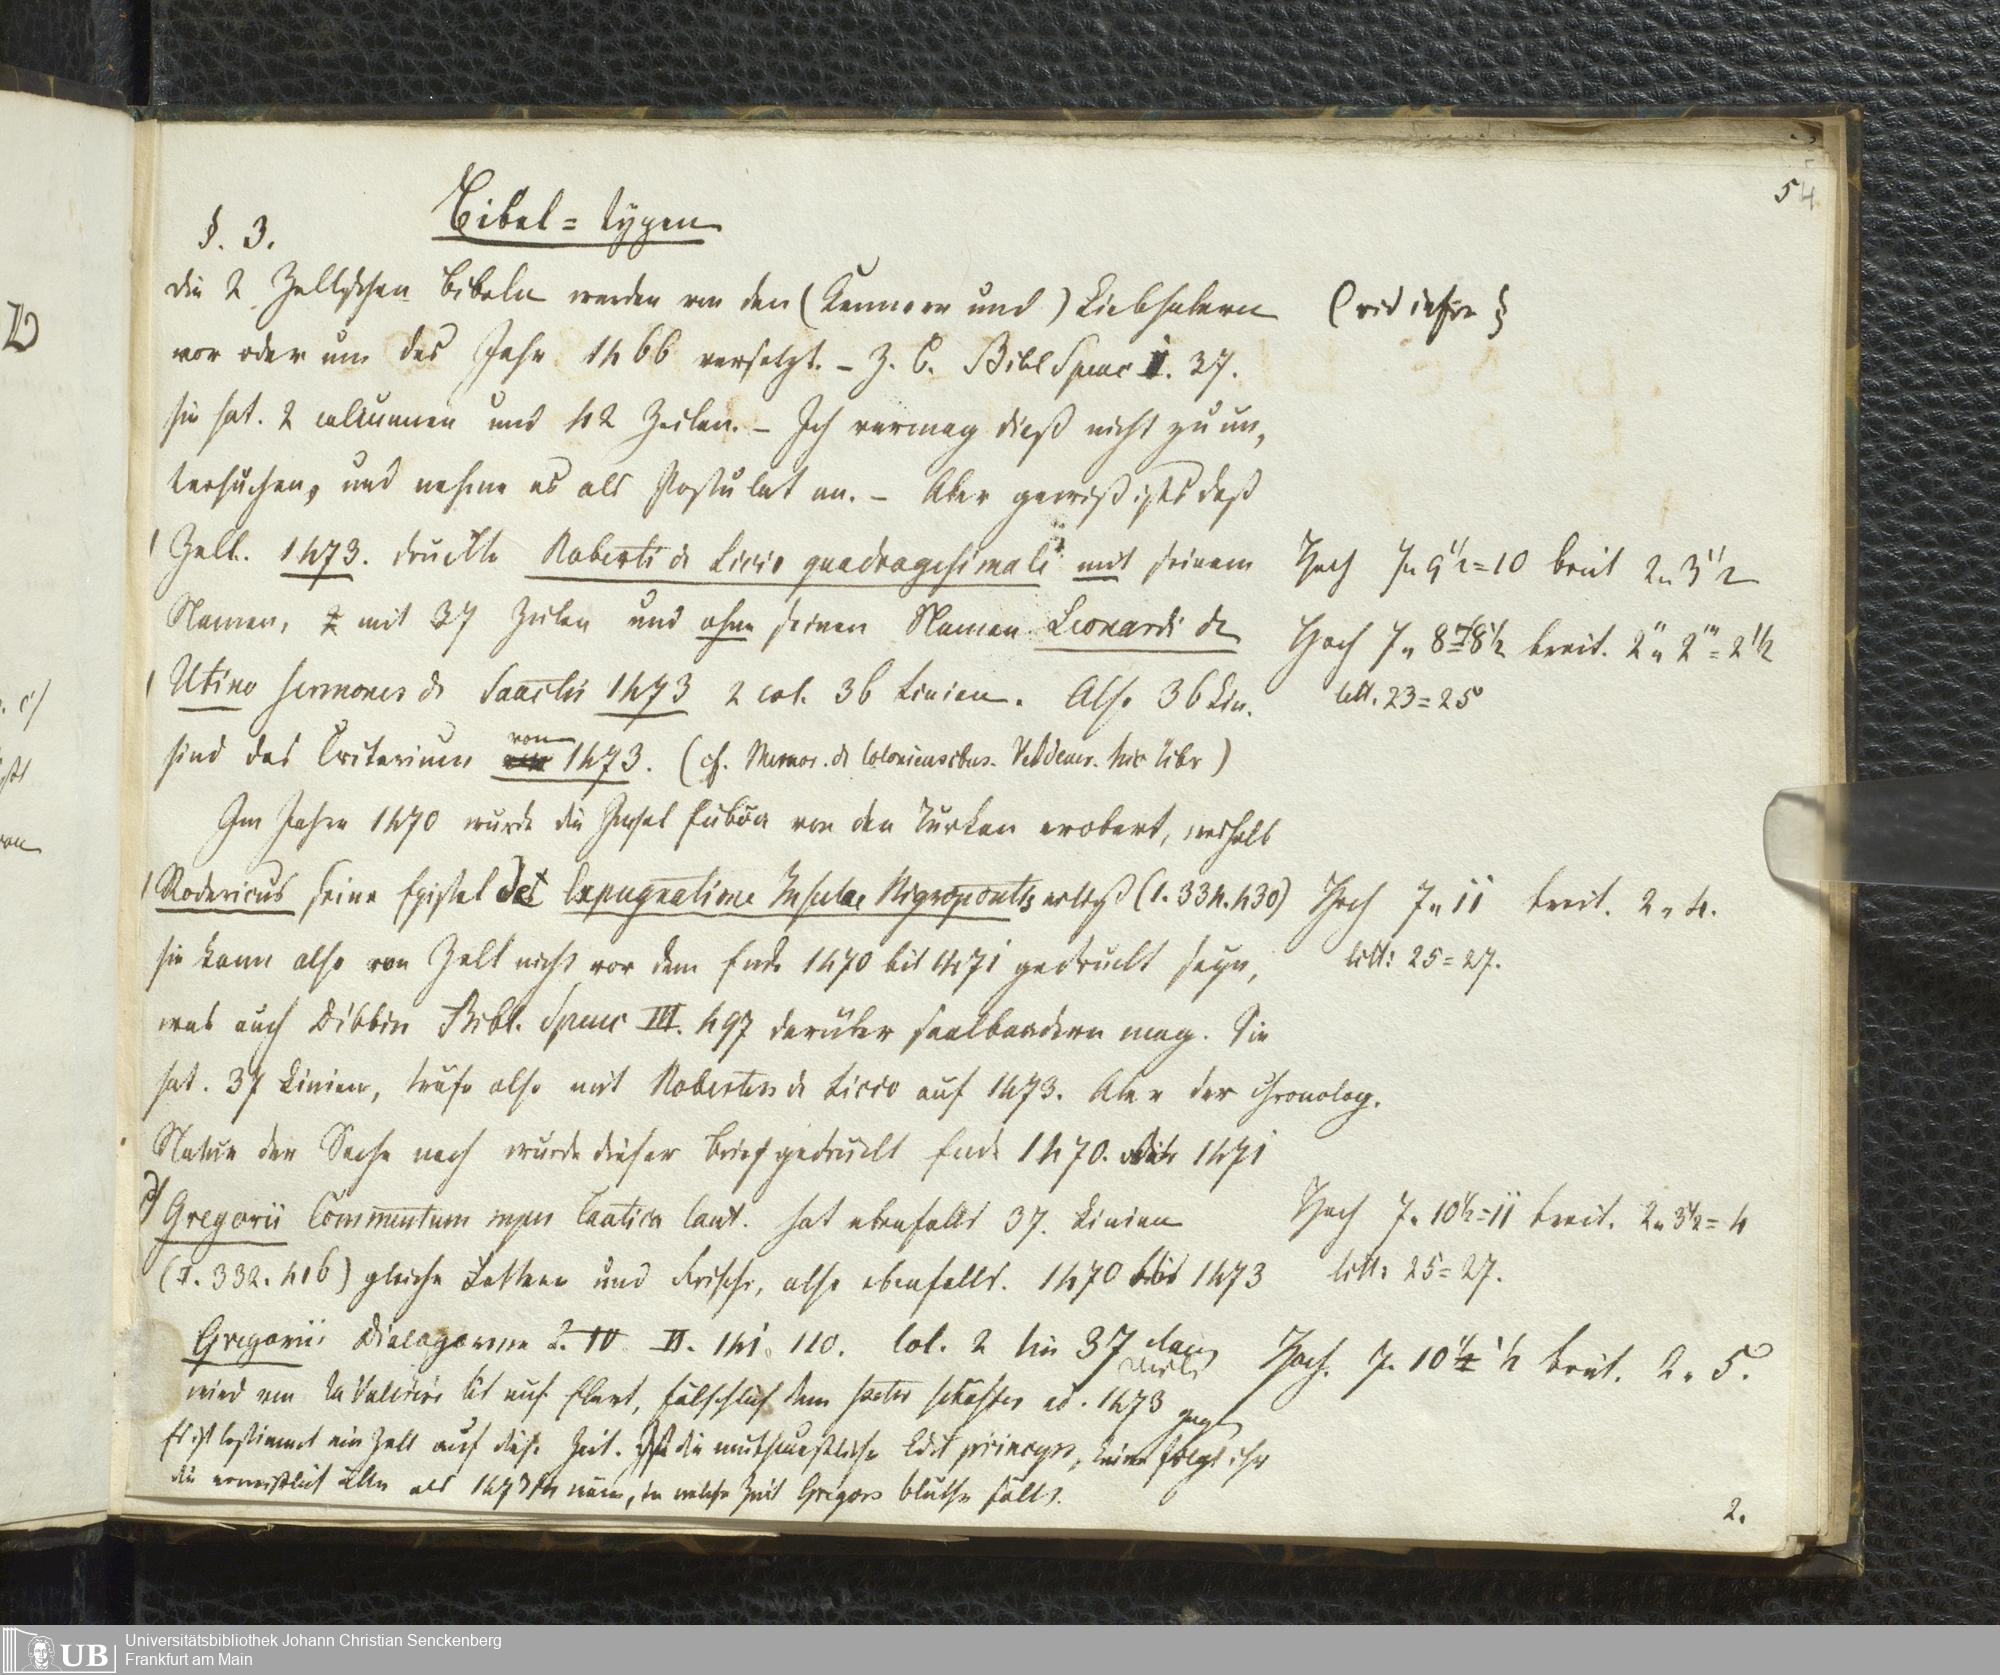 54
§. 3. Bibel = typen
Die 2 Zellischen Bibeln werden von den (Kennern und) Liebhabern (vid infra §
vor oder um das Jahr 1466 versetzt. – Z. B. Bibl Spenc I. 37.
sie hat. 2 columnen und 42 Zeilen. – Ich vermag dieß nicht zu un,
tersuchen, und nehme es als Postulat an. – Aber gewiß ists daß
Zell. 1473. druckte Roberti de Licio quadragesimale mit seinem Hoch 7" 9 1/2 = 10 breit 2" 3 1/2
Namen, mit 37 Zeilen und ohne seinen Namen Leonardi de Hoch 7" 8 = 8 1/2 breit. 2" 2''' = 2 1/2
Utino sermones de Sanctis 1473 2 col. 36 Linien. Also 36 Lin. litt. 23 = 25
sind das Criterium von 1473. (cf. Memor. de Coloniensibus. Veldener. hic libr)
Im Jahre 1470 wurde die Insel Euböa von den Türken erobert, weshalb
Rodericus seine Epistel de Expugnatione Insulae Nigropontis erließ (1. 334. 430) Hoch 7" 11 breit. 2" 4.
sie kann also von Zell nicht vor dem Ende 1470 bis 1471 gedruckt seyn, litt: 25 = 27.
was auch Dibbin Bibl. Spenc III. 497 darüber saalbadern mag. Sie
hat. 37 Linien, träfe also mit Robertus de Licio auf 1473. Aber der chronolog.
Natur der Sache nach wurde dieser Brief gedruckt Ende 1470. 1471
Gregorii Commentum super Cantica Cant. hat ebenfalls 37. Linien Hoch 7" 10 1/2 = 11 breit. 2" 3 1/2 = 4
(1. 332. 416) gleiche Lettern und Frische, also ebenfalls. 1470 bis 1473 litt: 25 = 27.
Gregorii Dialogorum L. IV II. 141. 110. Col. 2 lin 37 Hoch. 7" 10 1/2 breit. 2" 5.
wird von la Vallière auf Elert, fälschlich dem Peter Schöffer ad. 1473
Es ist bestimmt ein Zell auf diese Zeit. Ist die muthmaßliche Edit princeps, keine folgt ihr
die erweislich älter als 1473 wäre, in welche Zeit Gregors Blüthe fällt.
2.
Universitätsbibliothek Johann Christian Senckenberg
Frankfurt am Main
UB